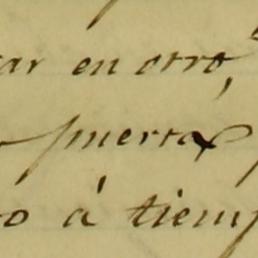 ar en otro,
puertas
o á tiemp